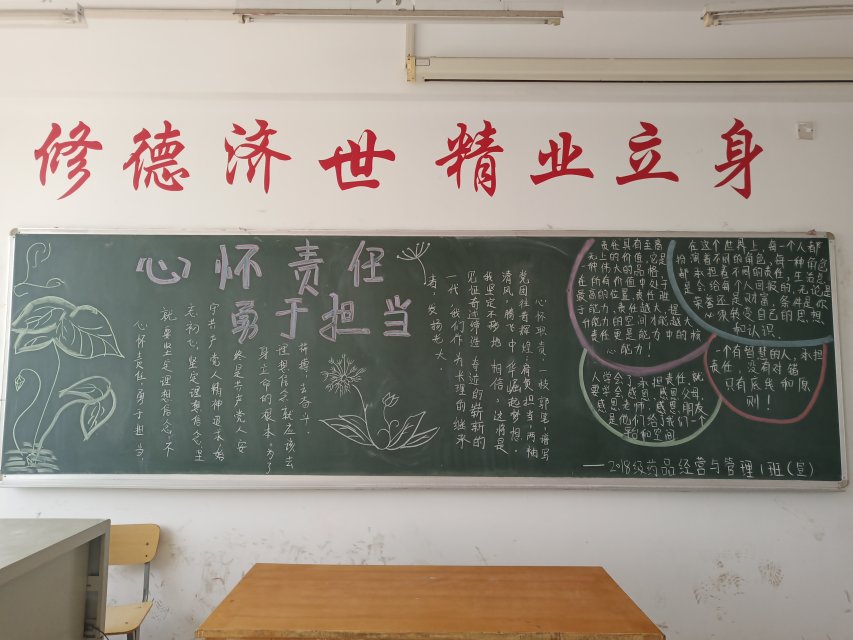 修德济世 精业立身
心怀责任
勇于担当
心怀责任,勇于担当,
就要坚定理想信念,不
忘初心,坚定理想信念,坚
守共产党人精神追求,始
终是共产党人安
身立命的根本,为了
理想信念就应该去
拼搏,去奋斗.
心怀职责,一枝 笔,谱写
辉煌,肩负担当,两袖
清风,腾飞中华崛起梦想.
我坚定不移地相信,这将是
见证奇迹缔造奇迹的崭新的
一代,我们作为 的继来
者,发扬光大.
责任具有至高
无上的价值,它是
一种伟大的品格,
在所有价值中处于
最高的位置,责任胜
于能力,责任越大,提
升能力的空间才能越大
责任更是能力中的核
心能力!
在这个世界上,每一个人都
扮演着不同的角色,每一种角色
都承担着不同的责任,生活总
是会给每个人回报的,无论是
荣誉还是财富,条件是你
必须转变自己的思想
和认识.
人学会了承担责任,就
要学会感恩,感恩父母,
感恩老师,感恩朋友
是他们给了我们一个
空间
一个有智慧的人,承担
责任,没有对错
只有底线和原
则!
——2018级药品经营与管理1班(宣)